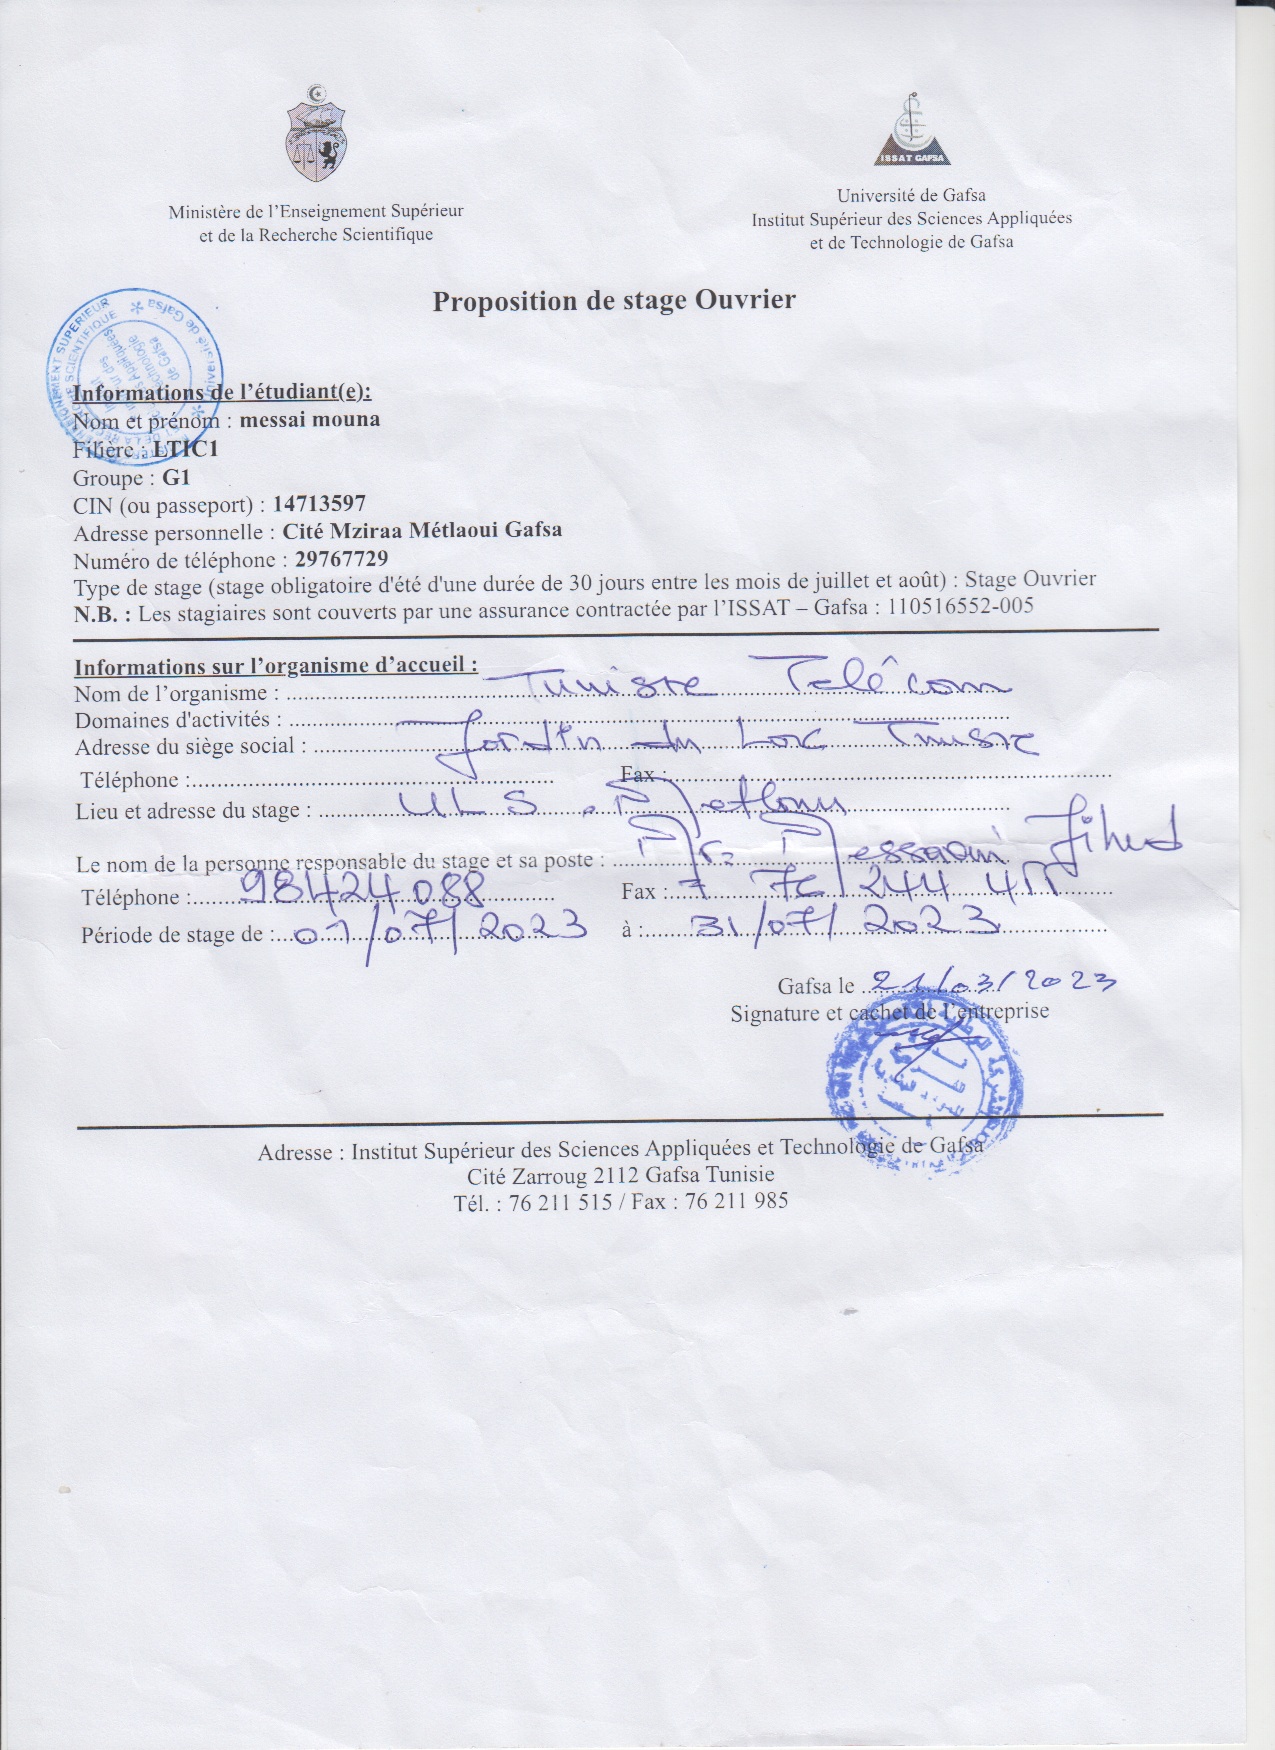 ISSAT GAFSA
Ministère de l'Enseignement Supérieur
et de la Recherche Scientifique
Université de Gafsa
Institut Supérieur des Sciences Appliquées
et de Technologie de Gafsa
Proposition de stage Ouvrier
Informations de l'étudiant(e):
Nom et prénom : messai mouna
Filière : LTIC1
Groupe : G1
CIN (ou passeport) : 14713597
Adresse personnelle : Cité Mziraa Métlaoui Gafsa
Numéro de téléphone : 29767729
Type de stage (stage obligatoire d'été d'une durée de 30 jours entre les mois de juillet et août) : Stage Ouvrier
N.B. : Les stagiaires sont couverts par une assurance contractée par l'ISSAT – Gafsa : 110516552-005
Informations sur l'organisme d'accueil :
Nom de l'organisme : Tunisie Telêcom
Domaines d'activités :
Adresse du siège social : Jardin du Lac Tunisie
Téléphone : Fax :
Lieu et adresse du stage : ULS
Le nom de la personne responsable du stage et sa poste : Mr Messaoui Jihed
Téléphone : 98424088 Fax : 76 244
Période de stage de : 01/07/2023 à : 31/07/2023
Gafsa le 21/03/2023
Signature et cachet de l'entreprise
Adresse : Institut Supérieur des Sciences Appliquées et Technologie de Gafsa
Cité Zarroug 2112 Gafsa Tunisie
Tél. : 76 211 515 / Fax : 76 211 985